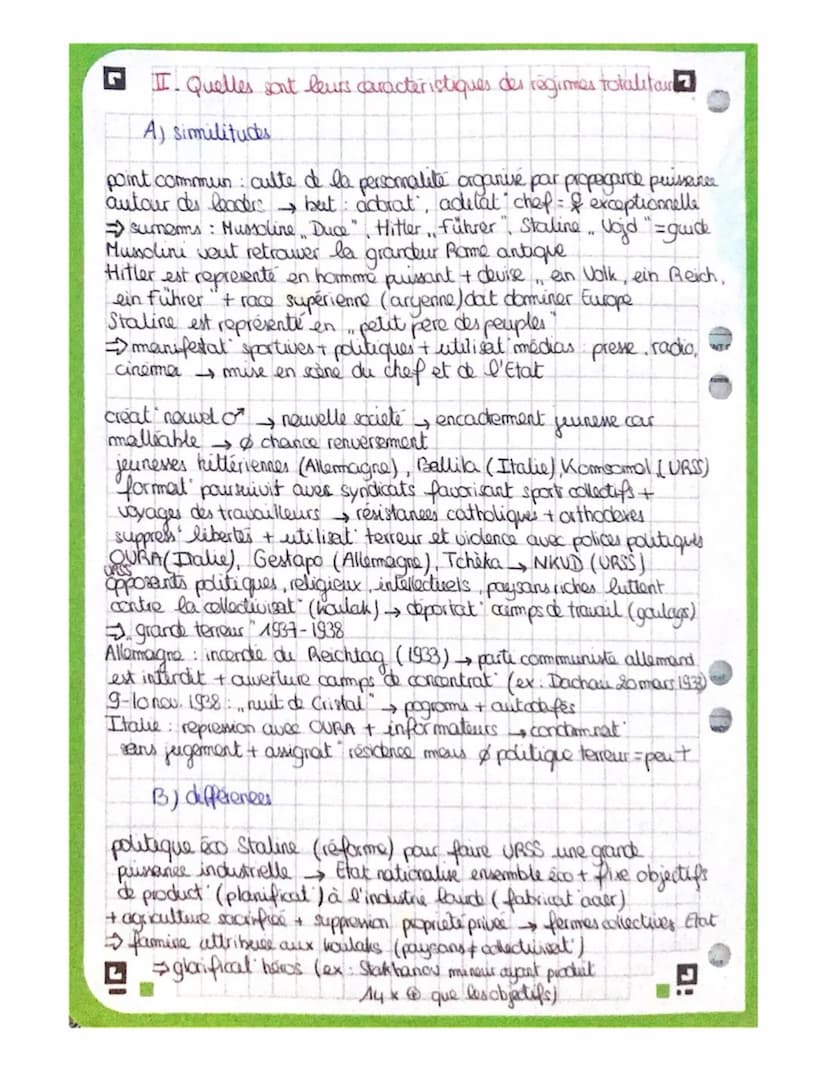 II- Quelles sont leurs caractéristiques des régimes totalitair
A) similitudes
point commun : culte de la personnalité organisé par propagande puissance
autour des leaders → but : adorat°, adulat° chef = exceptionnelle
⇒ surnoms : Mussoline „Duce", Hitler „Führer", Staline „Vojd" = guide
Mussolini veut retrouver la grandeur Rome antique
Hitler est représenté en homme puissant + devise „ein Volk, ein Reich,
ein Führer" + race supérienne (aryenne) doit dominer Europe
Staline est représenté en „petit père des peuples"
⇒ manifestat° sportives + politiques + utilisat° médias : presse, radio,
cinéma → mise en scène du chef et de l'Etat
créat° nouvel ♂ → nouvelle société → encadrement jeunesse car
malléable → ∅ chance renversement
jeunesses hitlériennes (Allemagne), Ballila (Italie), Komsomol (URSS)
format° poursuivit avec syndicats favorisant sports collectifs +
voyages des travailleurs → résistances catholiques + orthodoxes
suppress° libertés + utilisat° terreur et violence avec polices politiques
OVRA (Italie), Gestapo (Allemagne), Tchéka → NKVD (URSS)
URSS
opposants politiques, religieux, intellectuels, paysans riches luttent
contre la collectivisat° (koulak) → déportat° camps de travail (goulags)
⇒ „grande terreur" 1937-1938
Allemagne : incendie du Reichtag (1933) → parti communiste allemand
est interdit + ouverture camps de concentrat° (ex : Dachau 20 mars 1933)
9-10 nov. 1938 : „nuit de Cristal" → pogroms + autodafés
Italie : répression avec OVRA + informateurs → condamnat°
sans jugement + assignat° résidence mais ∅ politique terreur = peu †
B) différences
politique éco Staline (réforme) pour faire URSS une grande
puissance industrielle → Etat nationalise ensemble éco + fixe objectifs
de product° (planificat°) à l'industrie lourde (fabricat° acier)
+ agriculture sacrifiée + suppression propriété privée → fermes collectives Etat
⇒ famine attribuée aux koulaks (paysans ≠ collectivisat°)
⇒ glorificat° héros (ex : Stakhanov mineur ayant produit
14 x ⊕ que les objectifs)